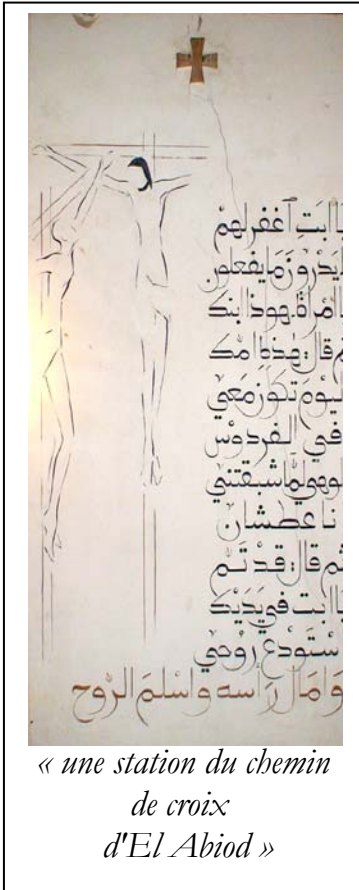 ا ابَتِ اغفرلهمْ
يَدْرُونَ مَا يفعلون
ا امراة هوذا ابنك
م قال: هذه امك
ليوم تكون معي
في الفردوس
لوهي لما شبقتني
نا عطشان
ثم قال: قد تم
ا ابت في يديك
ستودع روحي
وامال راسه واسلم الروح
« une station du chemin
de croix
d'El Abiod »